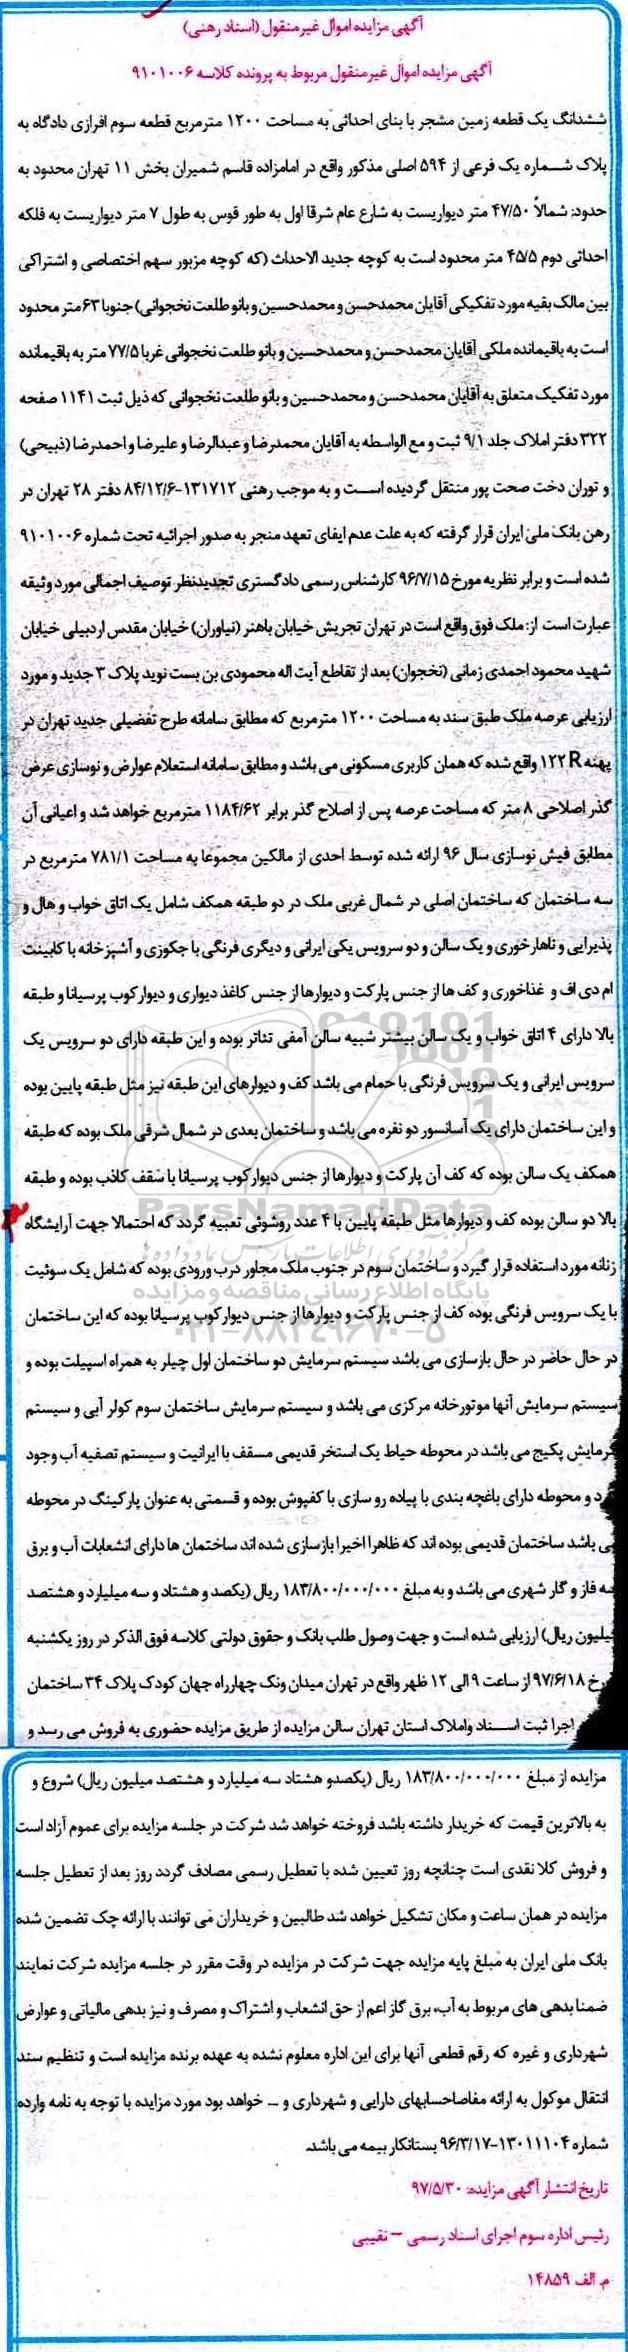 آگهی مزایده اموال غیرمنقول (اسناد رهنی)
آگهی مزایده اموال غیرمنقول مربوط به پرونده کلاسه ۹۱۰۱۰۰۶
ششدانگ یک قطعه زمین مشجر با بنای احداثی به مساحت ۱۲۰۰ مترمربع قطعه سوم افرازی دادگاه به
پلاک شماره یک فرعی از ۵۹۴ اصلی مذکور واقع در امامزاده قاسم شمیران بخش ۱۱ تهران محدود به
حدود: شمالاً ۴۷/۵۰ متر دیواریست به شارع عام شرقا اول به طور قوس به طول ۷ متر دیواریست به فلکه
احداثی دوم ۴۵/۵ متر محدود است به کوچه جدید الاحداث (که کوچه مزبور سهم اختصاصی و اشتراکی
بین مالک بقیه مورد تفکیکی آقایان محمدحسن و محمدحسین و بانو طلعت نخجوانی) جنوبا ۶۳ متر محدود
است به باقیمانده ملکی آقایان محمدحسن و محمدحسین و بانو طلعت نخجوانی غربا ۷۷/۵ متر به باقیمانده
مورد تفکیک متعلق به آقایان محمدحسن و محمدحسین و بانو طلعت نخجوانی که ذیل ثبت ۱۱۴۱ صفحه
۳۲۲ دفتر املاک جلد ۹/۱ ثبت و مع الواسطه به آقایان محمدرضا و عبدالرضا و علیرضا و احمدرضا (ذبیحی)
و توران دخت صحت پور منتقل گردیده است و به موجب رهنی ۱۳۱۷۱۲-۸۴/۱۲/۶ دفتر ۲۸ تهران در
رهن بانک ملی ایران قرار گرفته که به علت عدم ایفای تعهد منجر به صدور اجرائیه تحت شماره ۹۱۰۱۰۰۶
شده است و برابر نظریه مورخ ۹۶/۷/۱۵ کارشناس رسمی دادگستری تجدیدنظر توصیف اجمالی مورد وثیقه
عبارت است از: ملک فوق واقع است در تهران تجریش خیابان باهنر (نیاوران) خیابان مقدس اردبیلی خیابان
شهید محمود احمدی زمانی (نخجوان) بعد از تقاطع آیت اله محمودی بن بست نوید پلاک ۳ جدید و مورد
ارزیابی عرصه ملک طبق سند به مساحت ۱۲۰۰ مترمربع که مطابق سامانه طرح تفضیلی جدید تهران در
پهنه R۱۲۲ واقع شده که همان کاربری مسکونی می باشد و مطابق سامانه استعلام عوارض و نوسازی عرض
گذر اصلاحی ۸ متر که مساحت عرصه پس از اصلاح گذر برابر ۱۱۸۴/۶۲ مترمربع خواهد شد و اعیانی آن
مطابق فیش نوسازی سال ۹۶ ارائه شده توسط احدی از مالکین مجموعا به مساحت ۷۸۱/۱ مترمربع در
سه ساختمان که ساختمان اصلی در شمال غربی ملک در دو طبقه همکف شامل یک اتاق خواب و هال و
پذیرایی و ناهارخوری و یک سالن و دو سرویس یکی ایرانی و دیگری فرنگی با جکوزی و آشپزخانه با کابینت
ام دی اف و غذاخوری و کف ها از جنس پارکت و دیوارها از جنس کاغذ دیواری و دیوارکوب پرسیانا و طبقه
بالا دارای ۴ اتاق خواب و یک سالن بیشتر شبیه سالن آمفی تئاتر بوده و این طبقه دارای دو سرویس یک
سرویس ایرانی و یک سرویس فرنگی با حمام می باشد کف و دیوارهای این طبقه نیز مثل طبقه پایین بوده
و این ساختمان دارای یک آسانسور دو نفره می باشد و ساختمان بعدی در شمال شرقی ملک بوده که طبقه
همکف یک سالن بوده که کف آن پارکت و دیوارها از جنس دیوارکوب پرسیانا با سقف کاذب بوده و طبقه
بالا دو سالن بوده کف و دیوارها مثل طبقه پایین با ۴ عدد روشوئی تعبیه گردد که احتمالا جهت آرایشگاه
زنانه مورد استفاده قرار گیرد و ساختمان سوم در جنوب ملک مجاور درب ورودی بوده که شامل یک سوئیت
با یک سرویس فرنگی بوده کف از جنس پارکت و دیوارها از جنس دیوارکوب پرسیانا بوده که این ساختمان
در حال حاضر در حال بازسازی می باشد سیستم سرمایش دو ساختمان اول چیلر به همراه اسپیلت بوده و
سیستم سرمایش آنها موتورخانه مرکزی می باشد و سیستم سرمایش ساختمان سوم کولر آبی و سیستم
گرمایش پکیج می باشد در محوطه حیاط یک استخر قدیمی مسقف با ایرانیت و سیستم تصفیه آب وجود
و محوطه دارای باغچه بندی با پیاده رو سازی با کفپوش بوده و قسمتی به عنوان پارکینگ در محوطه
می باشد ساختمان قدیمی بوده اند که ظاهرا اخیرا بازسازی شده اند ساختمان ها دارای انشعابات آب و برق
سه فاز و گاز شهری می باشد و به مبلغ ۱۸۳/۸۰۰/۰۰۰/۰۰۰ ریال (یکصد و هشتاد و سه میلیارد و هشتصد
میلیون ریال) ارزیابی شده است و جهت وصول طلب بانک و حقوق دولتی کلاسه فوق الذکر در روز یکشنبه
مورخ ۹۷/۶/۱۸ از ساعت ۹ الی ۱۲ ظهر واقع در تهران میدان ونک چهارراه جهان کودک پلاک ۳۴ ساختمان
اجرا ثبت اسناد واملاک استان تهران سالن مزایده از طریق مزایده حضوری به فروش می رسد و
مزایده از مبلغ ۱۸۳/۸۰۰/۰۰۰/۰۰۰ ریال (یکصدو هشتاد سه میلیارد و هشتصد میلیون ریال) شروع و
به بالاترین قیمت که خریدار داشته باشد فروخته خواهد شد شرکت در جلسه مزایده برای عموم آزاد است
و فروش کلا نقدی است چنانچه روز تعیین شده با تعطیل رسمی مصادف گردد روز بعد از تعطیل جلسه
مزایده در همان ساعت و مکان تشکیل خواهد شد طالبین و خریداران می توانند با ارائه چک تضمین شده
بانک ملی ایران به مبلغ پایه مزایده جهت شرکت در مزایده در وقت مقرر در جلسه مزایده شرکت نمایند
ضمنا بدهی های مربوط به آب، برق گاز اعم از حق انشعاب و اشتراک و مصرف و نیز بدهی مالیاتی و عوارض
شهرداری و غیره که رقم قطعی آنها برای این اداره معلوم نشده به عهده برنده مزایده است و تنظیم سند
انتقال موکول به ارائه مفاصاحسابهای دارایی و شهرداری و ... خواهد بود مورد مزایده با توجه به نامه وارده
شماره ۱۳۰۱۱۱۰۴-۹۶/۳/۱۷ بستانکار بیمه می باشد.
تاریخ انتشار آگهی مزایده: ۹۷/۵/۳۰
رئیس اداره سوم اجرای اسناد رسمی – نقیبی
م الف ۱۴۸۵۹
ParsNamadData
مرکز فرآوری اطلاعات پارس نماد داده ها
پایگاه اطلاع رسانی مناقصه و مزایده
۰۲۱-۸۸۳۴۹۶۷۰-۵